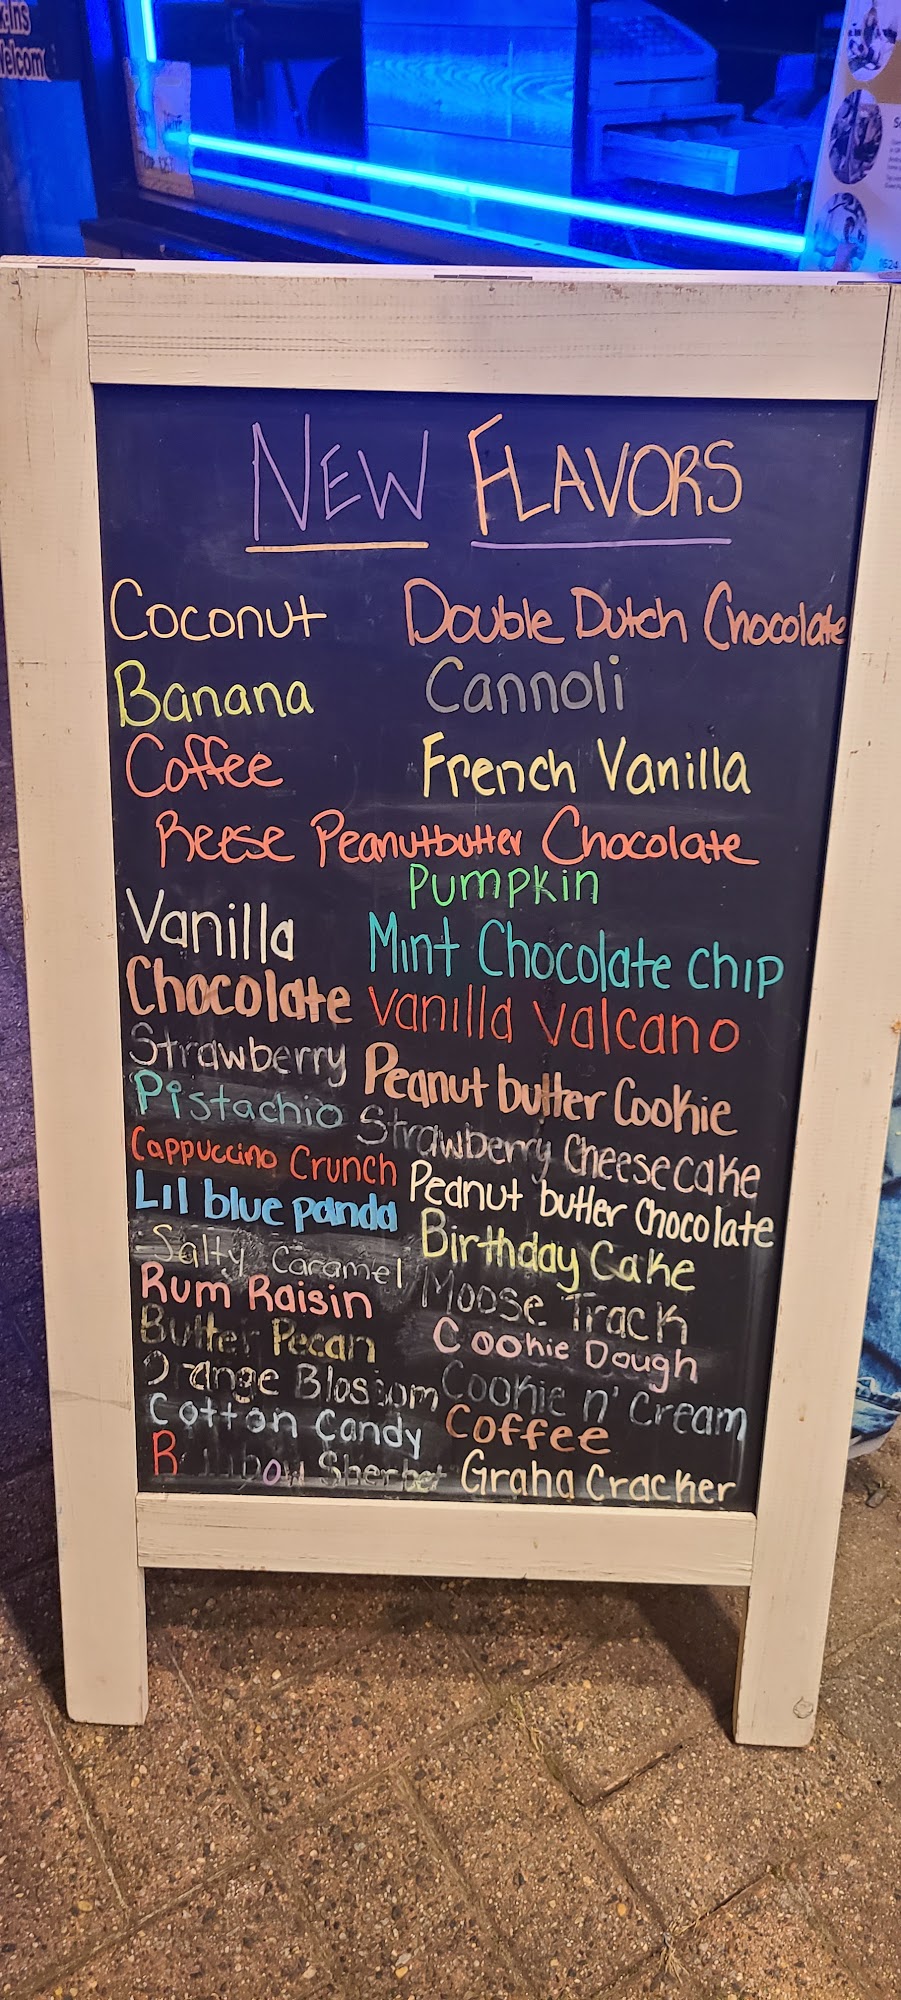 Welcome
NEW FLAVORS
Coconut
Banana
Coffee
Double Dutch Chocolate
Cannoli
French Vanilla
Reese Peanutbutter Chocolate
Vanilla
Chocolate
Strawberry
Pistachio
Cappuccino Crunch
Lil blue panda
Salty Caramel
Rum Raisin
Butter Pecan
Orange Blossom
Cotton Candy
Rainbow Sherbet
Pumpkin
Mint Chocolate chip
Vanilla Valcano
Peanut butter Cookie
Strawberry Cheesecake
Peanut butter Chocolate
Birthday Cake
Moose Track
Cookie Dough
Cookie n' Cream
Coffee
Graha Cracker